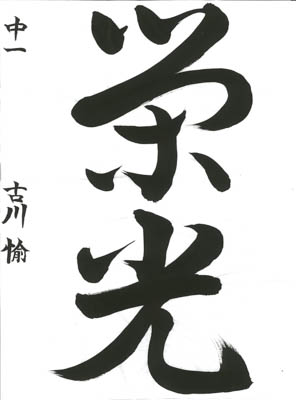 栄光
中一 古川愉